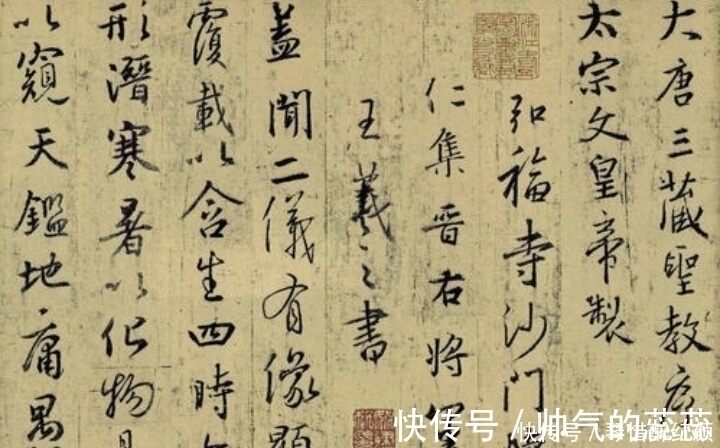 大唐三藏聖教序
太宗文皇帝製
弘福寺沙門懷
仁集晉右將軍
王羲之書
蓋聞二儀有像顯
覆載以含生四時
形潛寒暑以化物
以窺天鑑地庸愚
快传号/帅气的蕊蕊